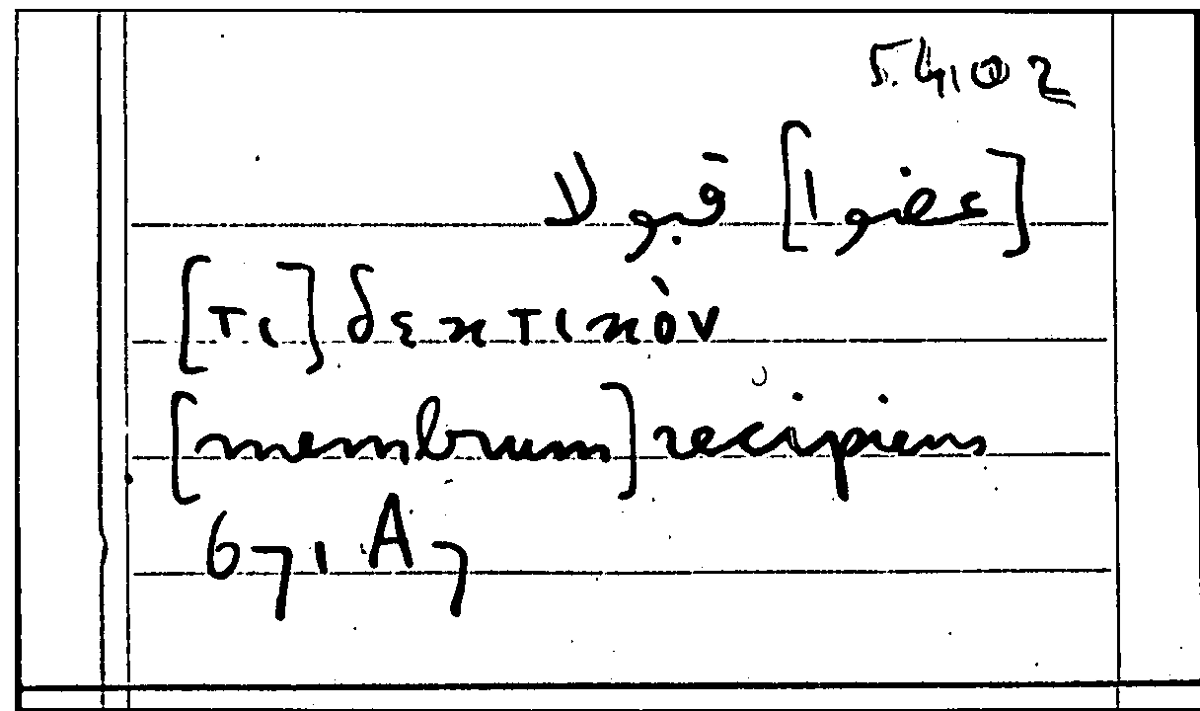 5.4102
[عضوا] قبولا
[τι] δεκτικὸν
[membrum] recipiens
671 A 7